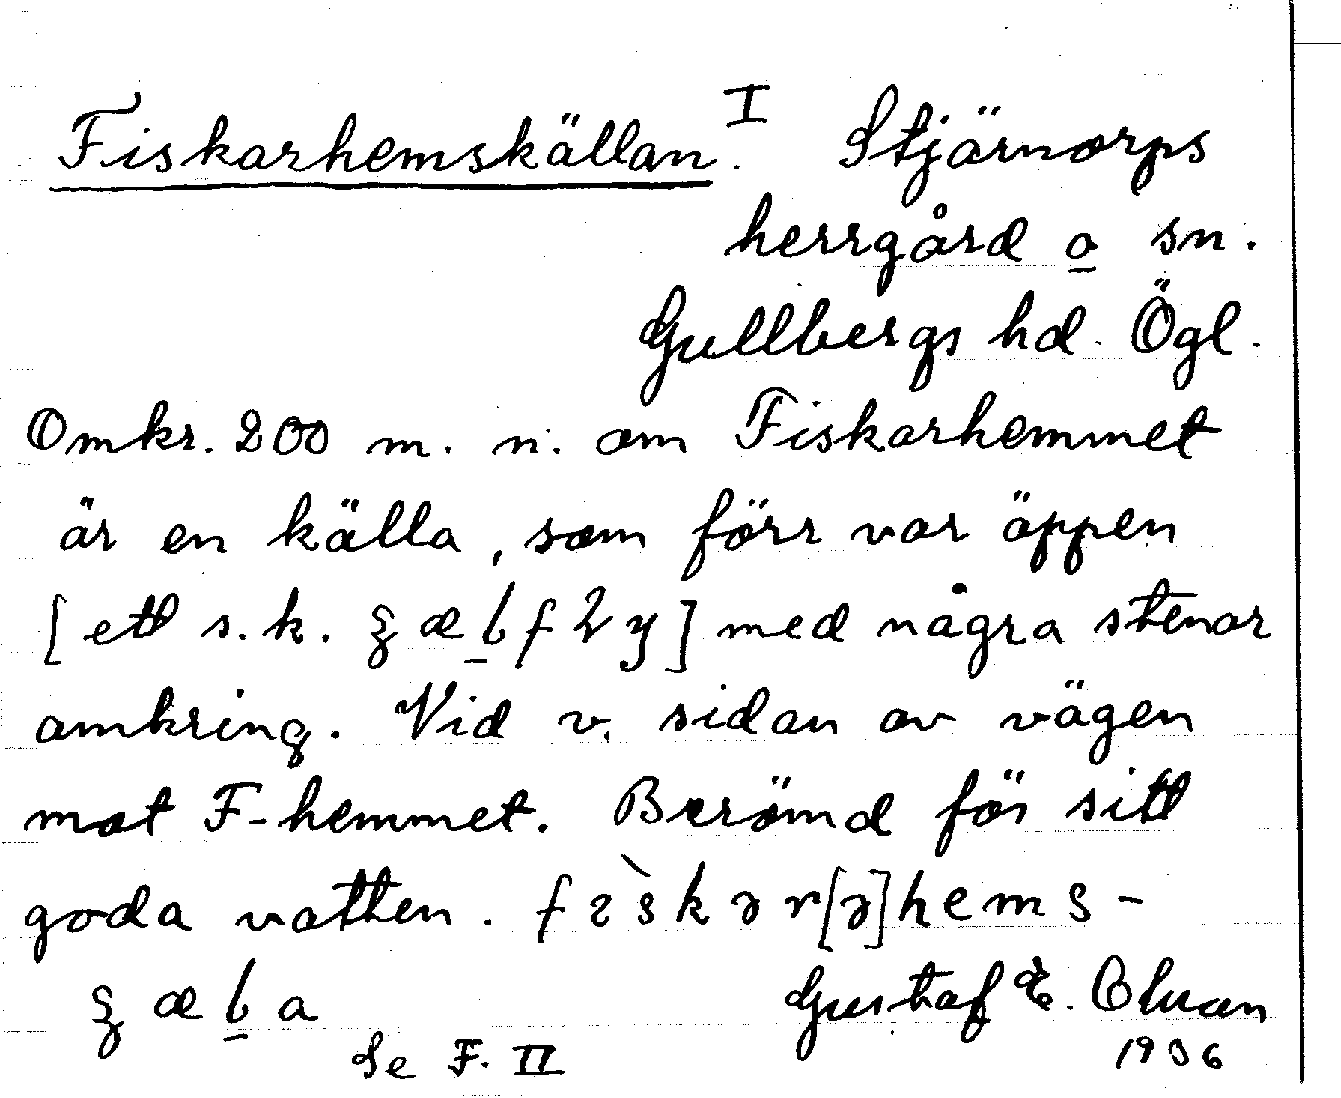 Fiskarhemskällan I. Stjärnorps
herrgård o sn.
Gullbergs hd. Ögl.
Omkr. 200 m. n. om Fiskarhemmet
är en källa, som förr var öppen
[ett s.k. ] med några stenar
omkring. Vid v. sidan av vägen
mot F-hemmet. Berömd för sitt
goda vatten. hems-
Se F. II
Gustaf
1936